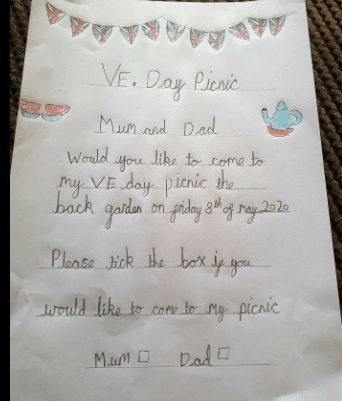 VE. Day Picnic
Mum and Dad
Would you like to come to
my VE day picnic the
back garden on friday 8th of may 2020
Please tick the box if you
would like to come to my picnic
Mum ☐ Dad ☐